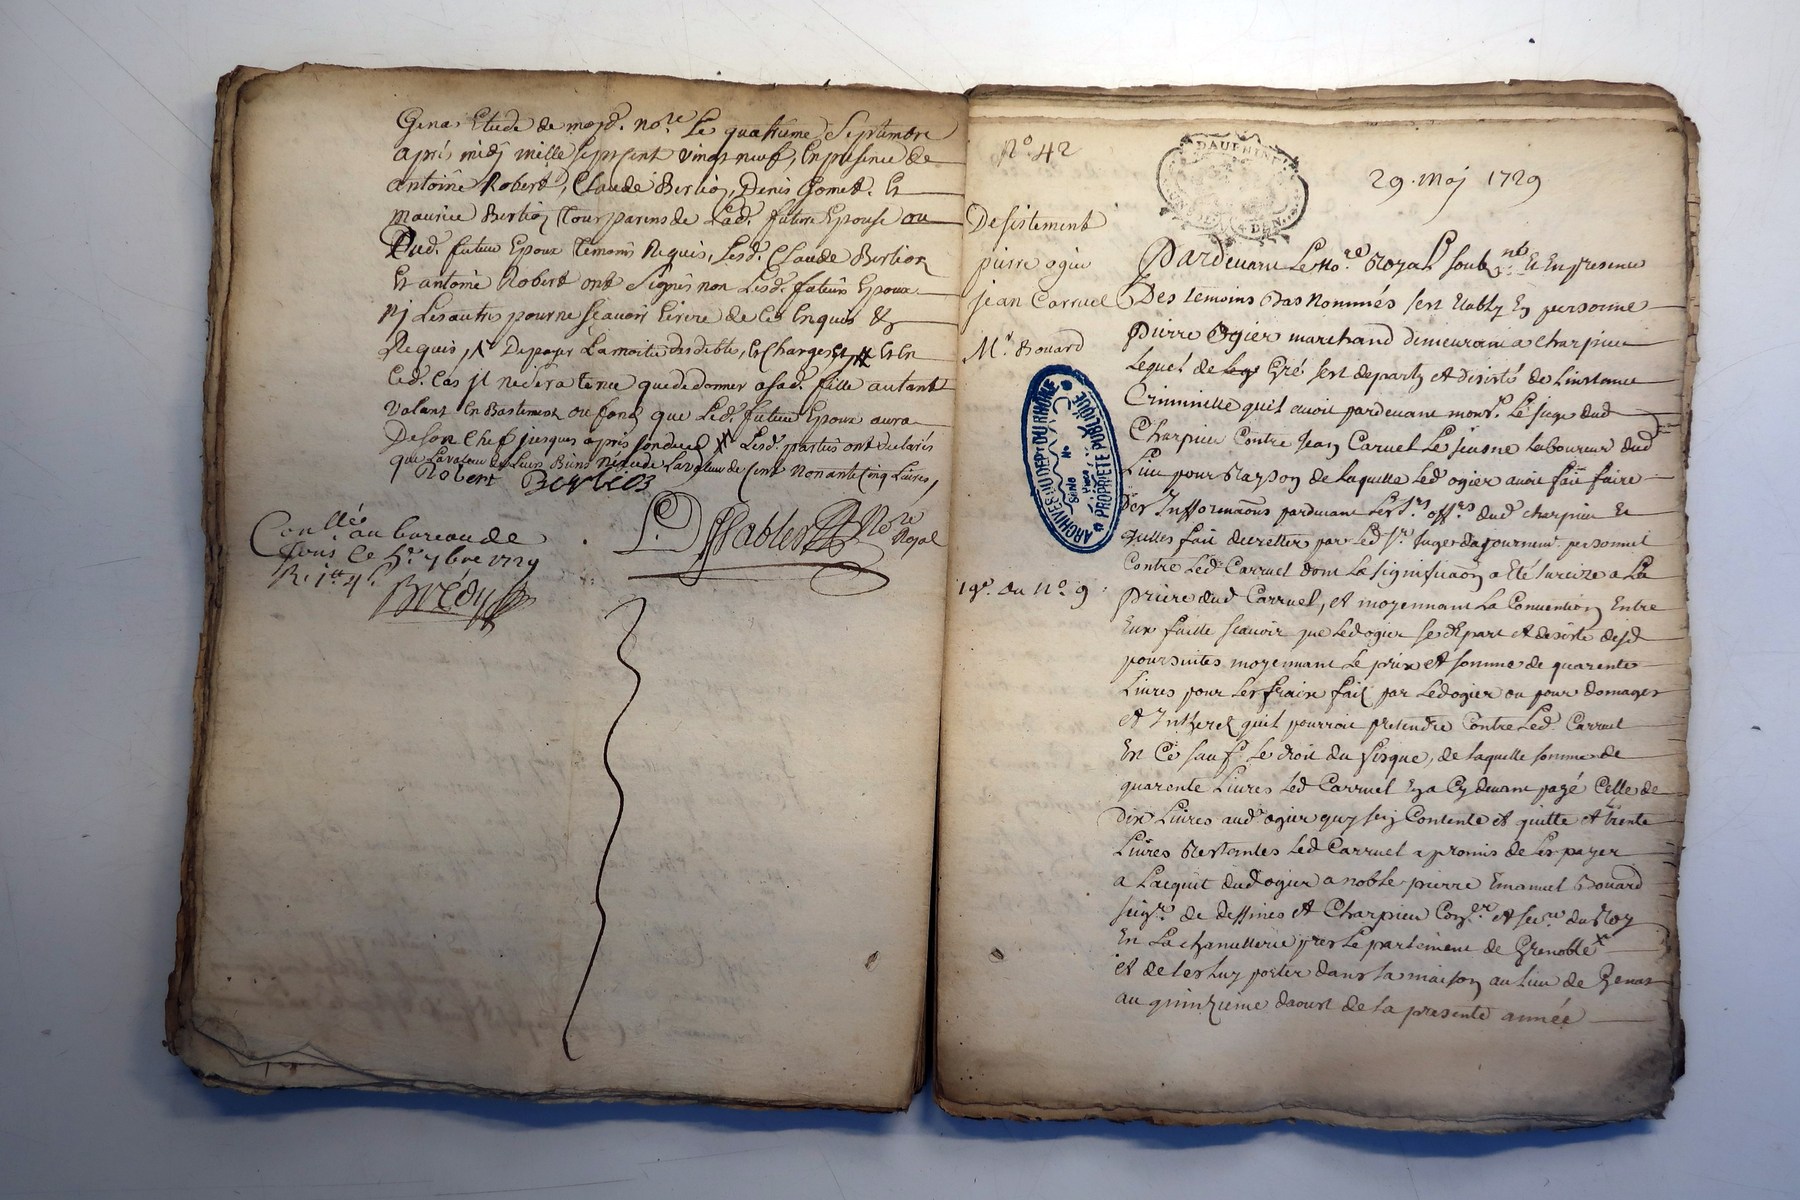 Genas Etude de moyd. no.re Le quatrieme Septembre
apres midj mille sept sent vingt neuf, En presence de
antoine Robert, Claude Berlioz, Denis Gomet. Et
maurice Berlioz tour parens de Lad. future Epouse ou
Dud. futeur Epoux temoins Requis, Lesd. Claude Berlioz
Et antoine Robert ont Signés non Lesd. futeurs Epoux
nj Les autres pour ne scavoir Ecrire de Ce Enquis &
Requis, De payer La moitié des debtes, Et Charges Et En
Ced. Cas jl ne sera tenue que de donner a sad. fille autant
valant En Bastiment ou fond que Led. futeur Epoux aura
De son Chef jusques apres son deced Lesd. parties ont declarés
que La valeur de Leurs Biens Lavaleur de Cent Nonante Cinq Livres,
Robert Berlioz
Con.llée au bureau de
Le 5.e 7bre 1729
R. 1.tt 4.s
Dessables No.re
Royal
N.o 42
29. Maj 1729
Desistement
pierre ogier
jean Carruel
M.r Bouard
DAUPHINE
4 DEN.
ARCHIVES DU DEP.T DU RHÔNE
PROPRIETE PUBLIQUE
Pardevant Le No.re Royal Soub.né Et En presence
Des temoins Bas Nommés sest Etably En personne
Pierre Ogier marchand demeurant a Charpieu
Lequel de Gré sest departy et desisté de Linstance
Criminelle quil avoit pardevant mons.r Le juge dud
Charpieu Contre Jean Carruel Le jeusne Laboureur dud
Lieu pour Rayson de laquelle Led ogier avoit fait faire
Des Inssormaons pardevant Les S.rs off.rs dud Charpieu Et
Icelles fait decretter par Led S.r Juge dajournem.t personnel
Contre Led. Carruel dont La signifficaon a Eté Surcize a La
19.e du N.o 9
priere dud Carruel, et moyennant La Convention Entre
Eux faitte scavoir que Led ogier se depart et desiste desd
poursuites moyennant Le prix et somme de quarente
Livres pour les fraix fait par Led ogier ou pour domages
et Intherets quil pourroit pretendre Contre Led. Carruel
En Ce sauf Le droit du fisque, de laquelle somme de
quarente Livres Led Carruel En a Cy devant payé Celle de
Dix Livres aud ogier quy sen Contente et quitte et trente
Livres Restantes Led Carruel a promis de les payer
a Lacquit dud ogier a noble pierre Emanuel Bouard
seig.r de dessines et Charpieu Con.er et sec.re du Roy
En La chancellerie pres Le parlement de Grenoble
et de les luy porter dans sa maison au lieu de Genas
au quinzieme daoust de la presente année